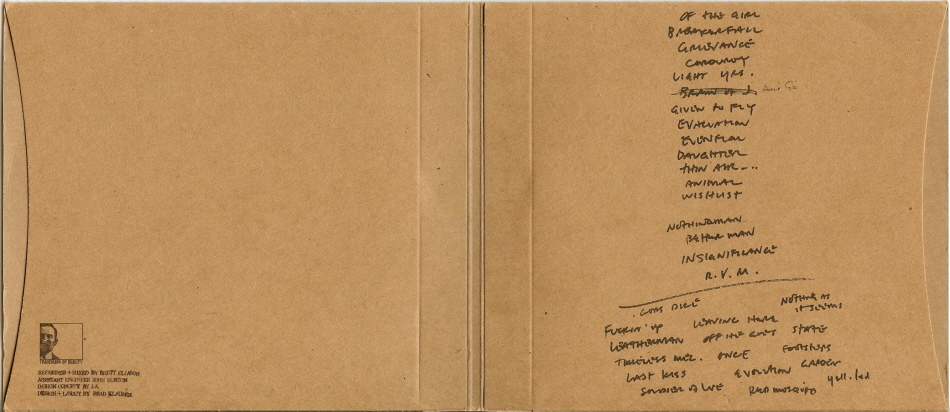 RECORDED + MIXED BY BRETT ELIASON
ASSISTANT ENGINEER JOHN BURTON
DESIGN CONCEPT BY J.A.
DESIGN + LAYOUT BY BRAD KLAUSEN
OF THE GIRL
BREAKERFALL
GRIEVANCE
CORDUROY
LIGHT YRS.
BRAIN OF J.
GIVEN TO FLY
EVACUATION
EVENFLOW
DAUGHTER
THIN AIR...
ANIMAL
WISHLIST
NOTHINGMAN
BETTER MAN
INSIGNIFICANCE
R.V.M.
DICE
NOTHING AS
IT SEEMS
FUCKIN' UP LEAVING HERE
LEATHERMAN OFF HE GOES STATE
TIMELESS MEL. ONCE FOOTSTEPS
LAST KISS EVOLUTION GARDEN
SOLDIER OF LOVE RED MOSQUITO yell. led